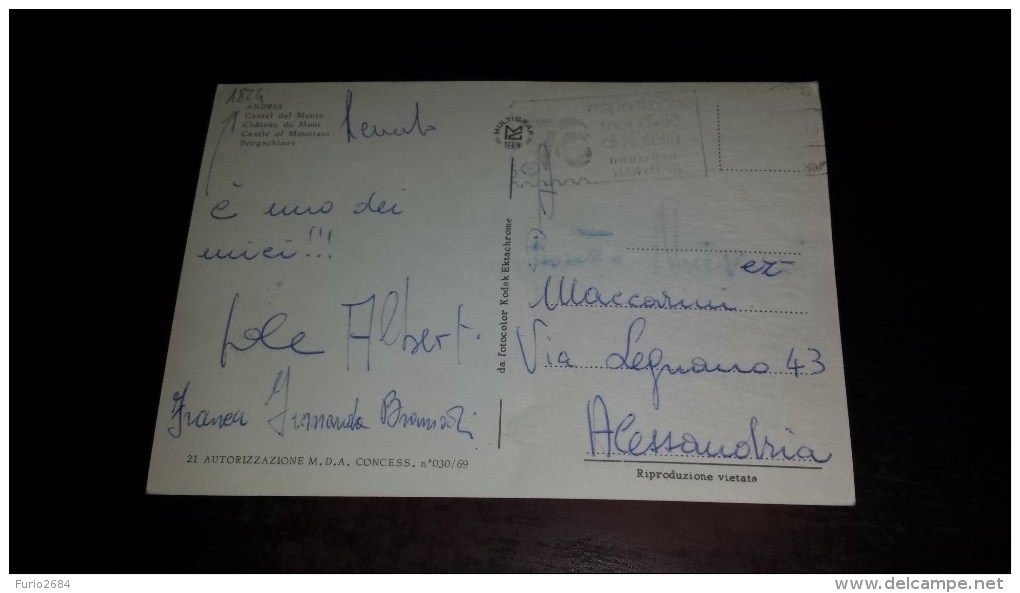 1824
ANDRIA
Castel del Monte
Château du Mont
Castle of Mountain
Bergschloss
Renato
è uno dei
miei!!!
Iole Albert.
Franca Fernanda
21 AUTORIZZAZIONE M.D.A. CONCESS. n°030/69
MULTIGRAF
TERNI
da fotocolor Kodak Ektachrome
Maccarini
Via Legnano 43
Alessandria
Riproduzione vietata
Furio2684
http://www.delcampe.net